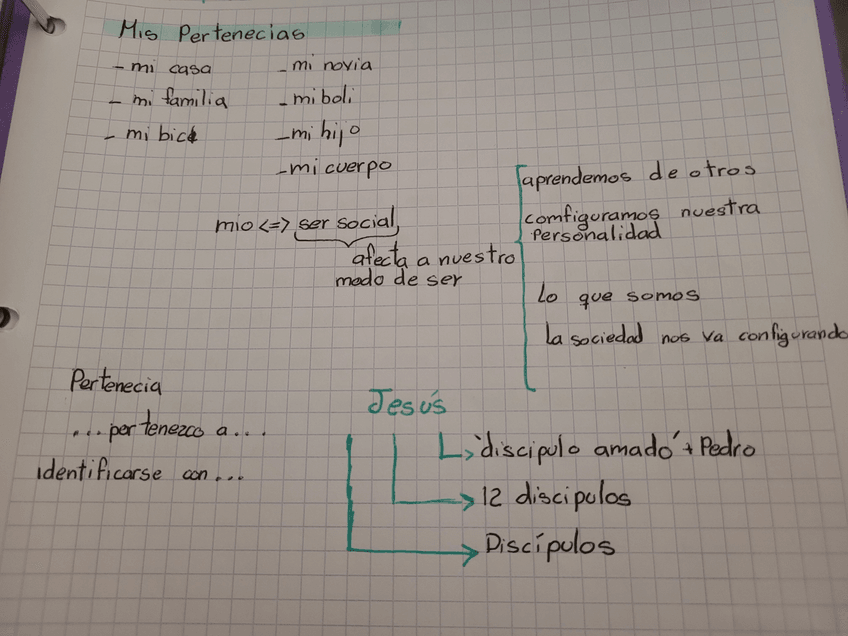 Mis Pertenecias
- mi casa
- mi familia
- mi bici
- mi novia
- mi boli
- mi hijo
- mi cuerpo
mio <=> ser social
afecta a nuestro
modo de ser
aprendemos de otros
comfiguramos nuestra
personalidad
lo que somos
la sociedad nos va configurando
Pertenecia
... pertenezco a ...
identificarse con ...
Jesús
'discipulo amado' + Pedro
12 discipulos
Discípulos